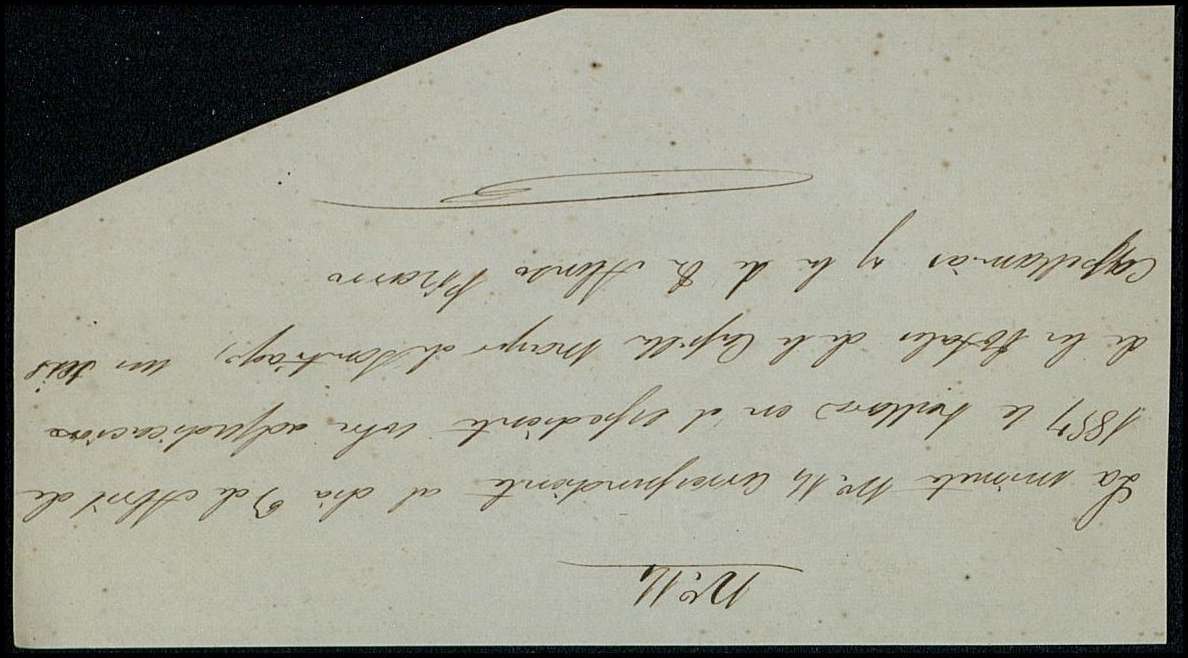 Nº 14
La minuta Nº 14 correspondiente al dia 9 de Abril de
1857, se hallara en el espediente sobre adjudicacion
de los totales de la Capilla mayor de Santiago, sus seis
Capellanias y la de Dn Alonso Pizarro